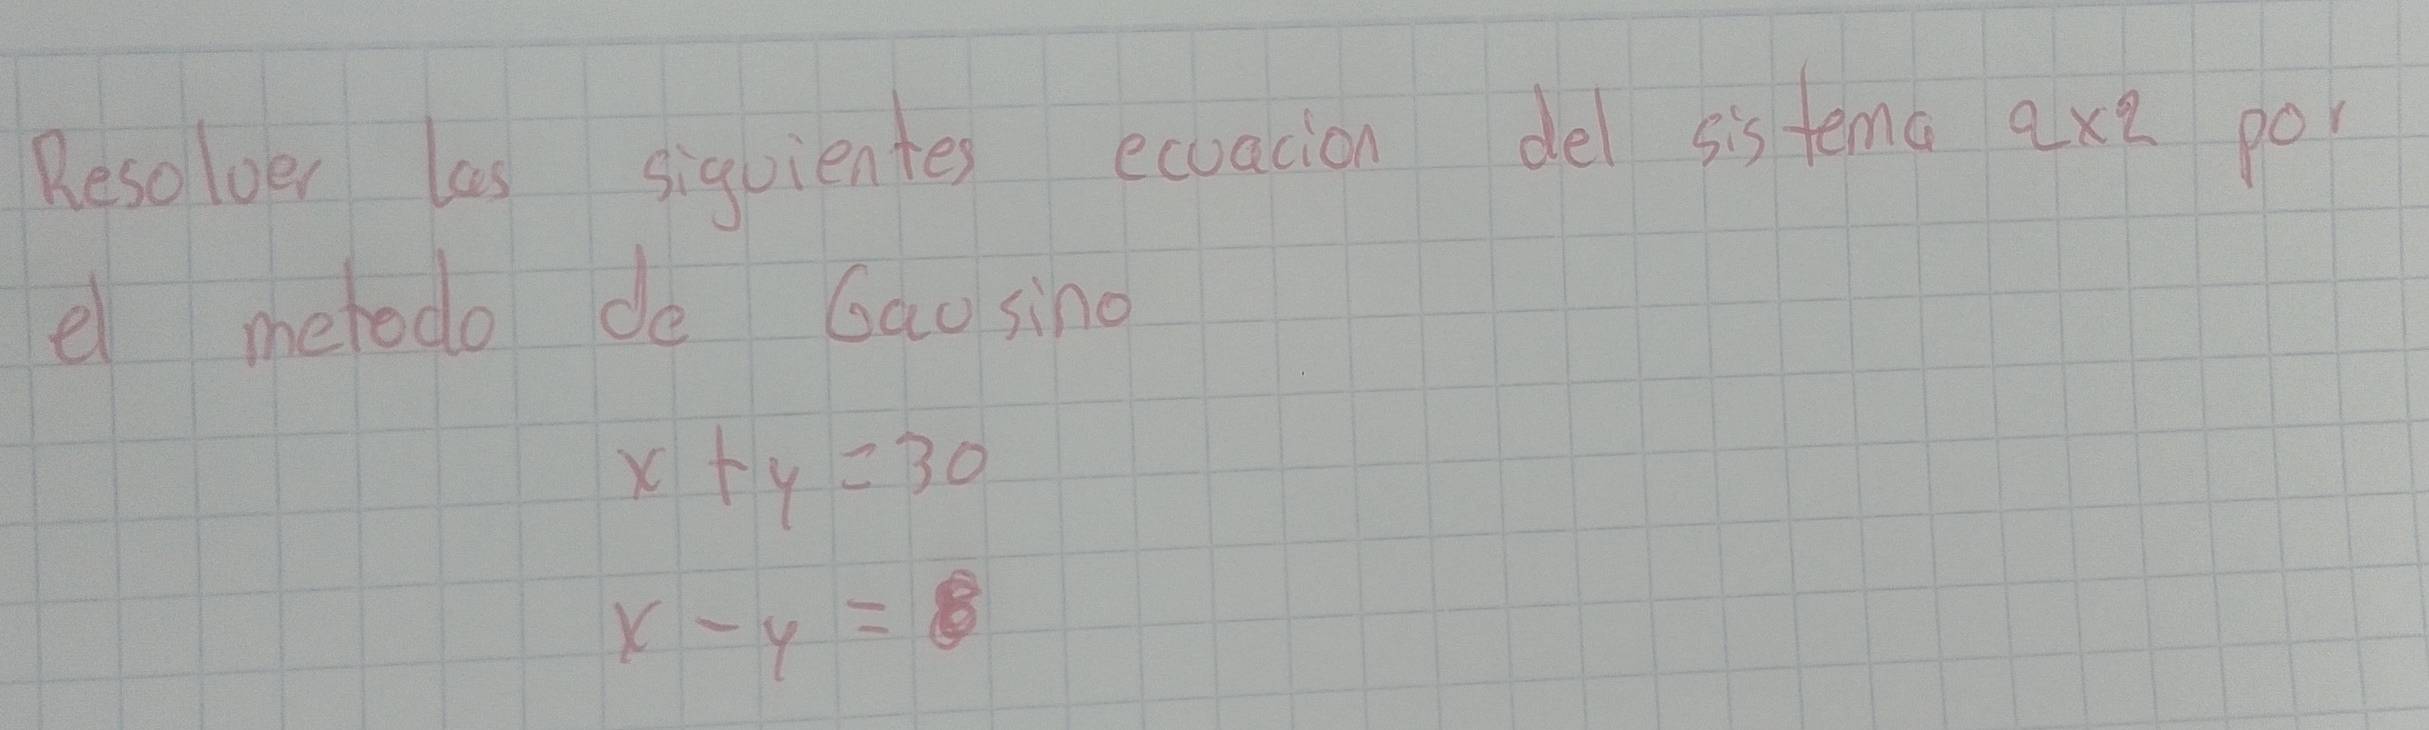 Resolver las siguientes ecuacion del sistema 2x2 por
el metodo de Gausino
x + y = 30
x - y =